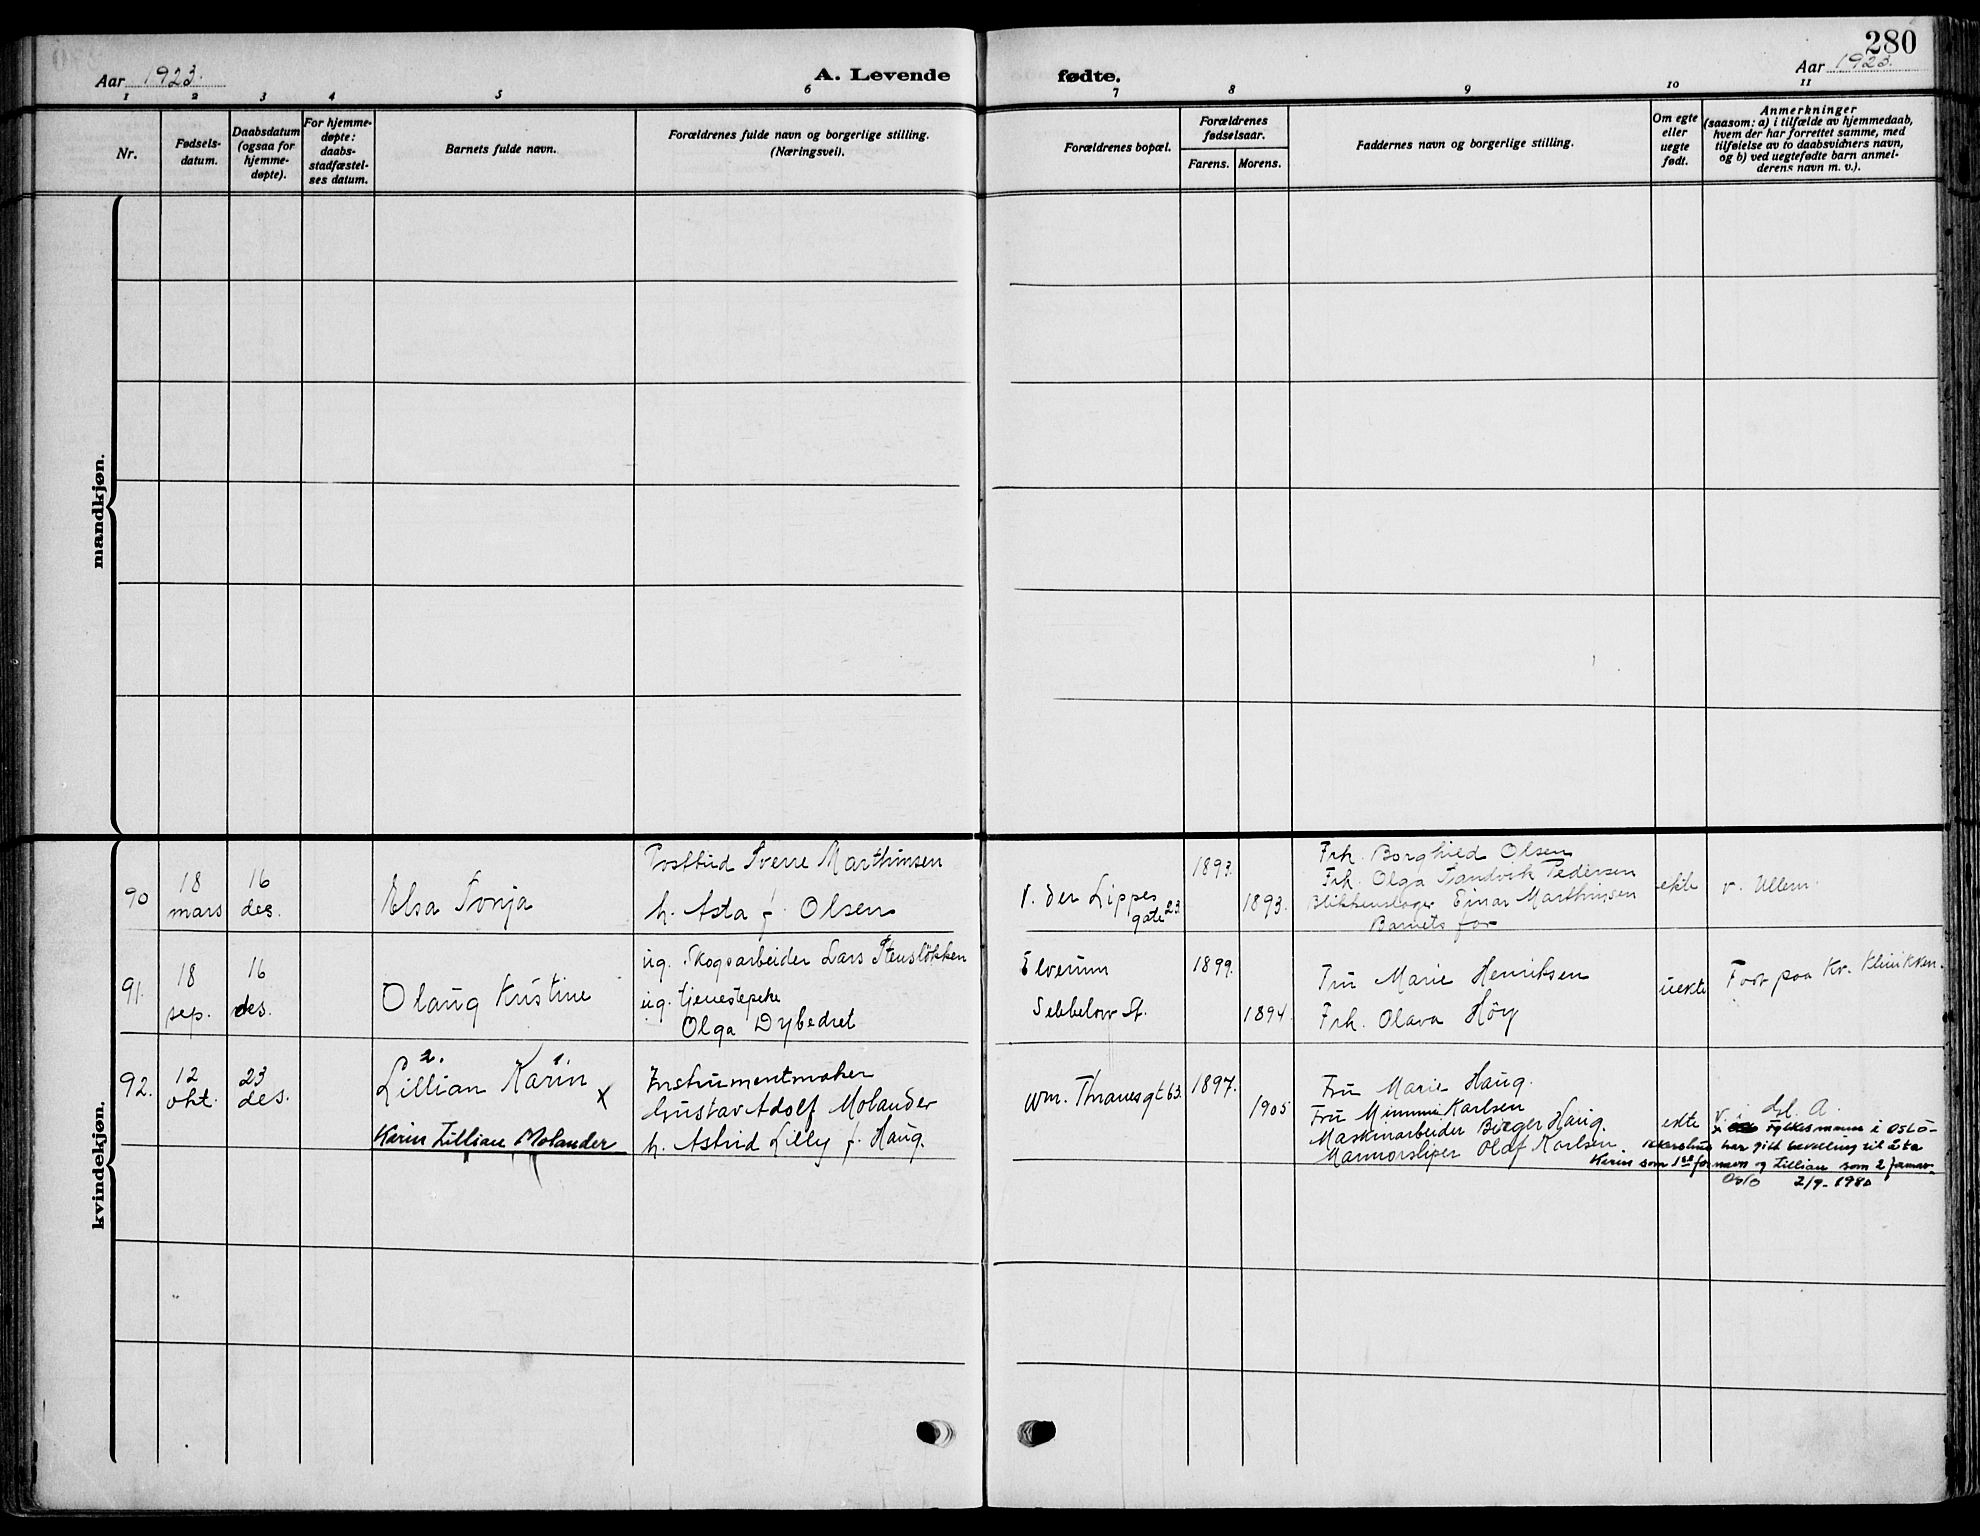 280
Aar 1923.
A. Levende fødte.
Aar 1923.
1 2 3 4 5 6 7 8 9 10 11
Nr.
Fødsels-
datum.
Daabsdatum
(ogsaa for
hjemme-
døpte).
For hjemme-
døpte:
daabs-
stadfæstel-
ses datum.
Barnets fulde navn.
Forældrenes fulde navn og borgerlige stilling.
(Næringsvei).
Forældrenes bopæl.
Forældrenes
fødselsaar.
Farens. Morens.
Faddernes navn og borgerlige stilling.
Om egte
eller
uegte
født.
Anmerkninger
(saasom: a) i tilfælde av hjemmedaab,
hvem der har forrettet samme, med
tilføielse av to daabsvidners navn,
og b) ved uegtefødte barn anmel-
derens navn m. v.).
mandkjøn.
kvindekjøn.
90
18
mars
16
des.
Elsa Sonja
Postbud Sverre Marthinsen
h. Asta f. Olsen
v. der Lippes
gate 23
1893.
1893.
Frk. Borghild Olsen
Frk. Olga Sandvik Pedersen
Blikkenslager Einar Marthinsen
Barnets far
ekte
v. Ullern
91.
18
sep.
16
des.
Olaug Kristine
ug. Skogsarbeider Lars Stensløkken
ug. tjenestepike
Olga Dybedret
Elverum
Sebbelow St.
1899.
1894.
Fru Marie Henriksen
Frk. Olava Höy
uekte
Født paa Kv. Klinikken.
92.
12
okt.
23
des.
2. 1.
Lillian Karin x
Karin Lillian Molander
Instrumentmaker
Gustav Adolf Molander
h. Astrid Lilly f. Haug.
Wm. Thranesgt 63.
1897.
1905
Fru Marie Haug.
Fru Mimmi Karlsen
Maskinarbeider Birger Haug.
Marmorsliper Olaf Karlsen
ekte
v. i Gl. A.
x Fylkesmannen i Oslo-
Akershus har gitt bevilling til å ta
Karin som 1ste fornavn og Lillian som 2 fornavn
Oslo 2/9-1980